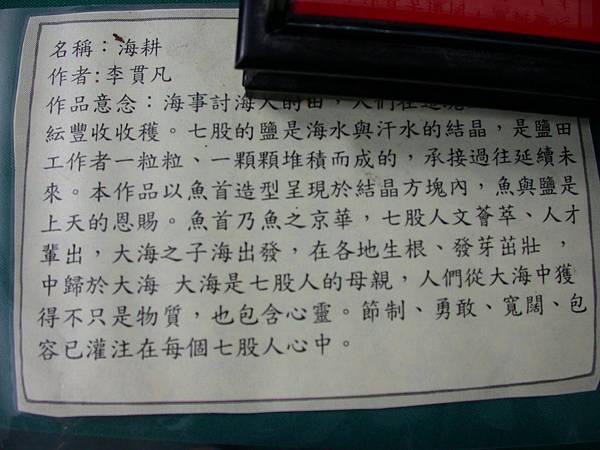 名稱：海耕
作者:李貫凡
作品意念：海事討海人的田，人們在這
紜豐收收穫。七股的鹽是海水與汗水的結晶，是鹽田
工作者一粒粒、一顆顆堆積而成的，承接過往延續未
來。本作品以魚首造型呈現於結晶方塊內，魚與鹽是
上天的恩賜。魚首乃魚之京華，七股人文薈萃、人才
輩出，大海之子海出發，在各地生根、發芽茁壯，
中歸於大海 大海是七股人的母親，人們從大海中獲
得不只是物質，也包含心靈。節制、勇敢、寬闊、包
容已灌注在每個七股人心中。